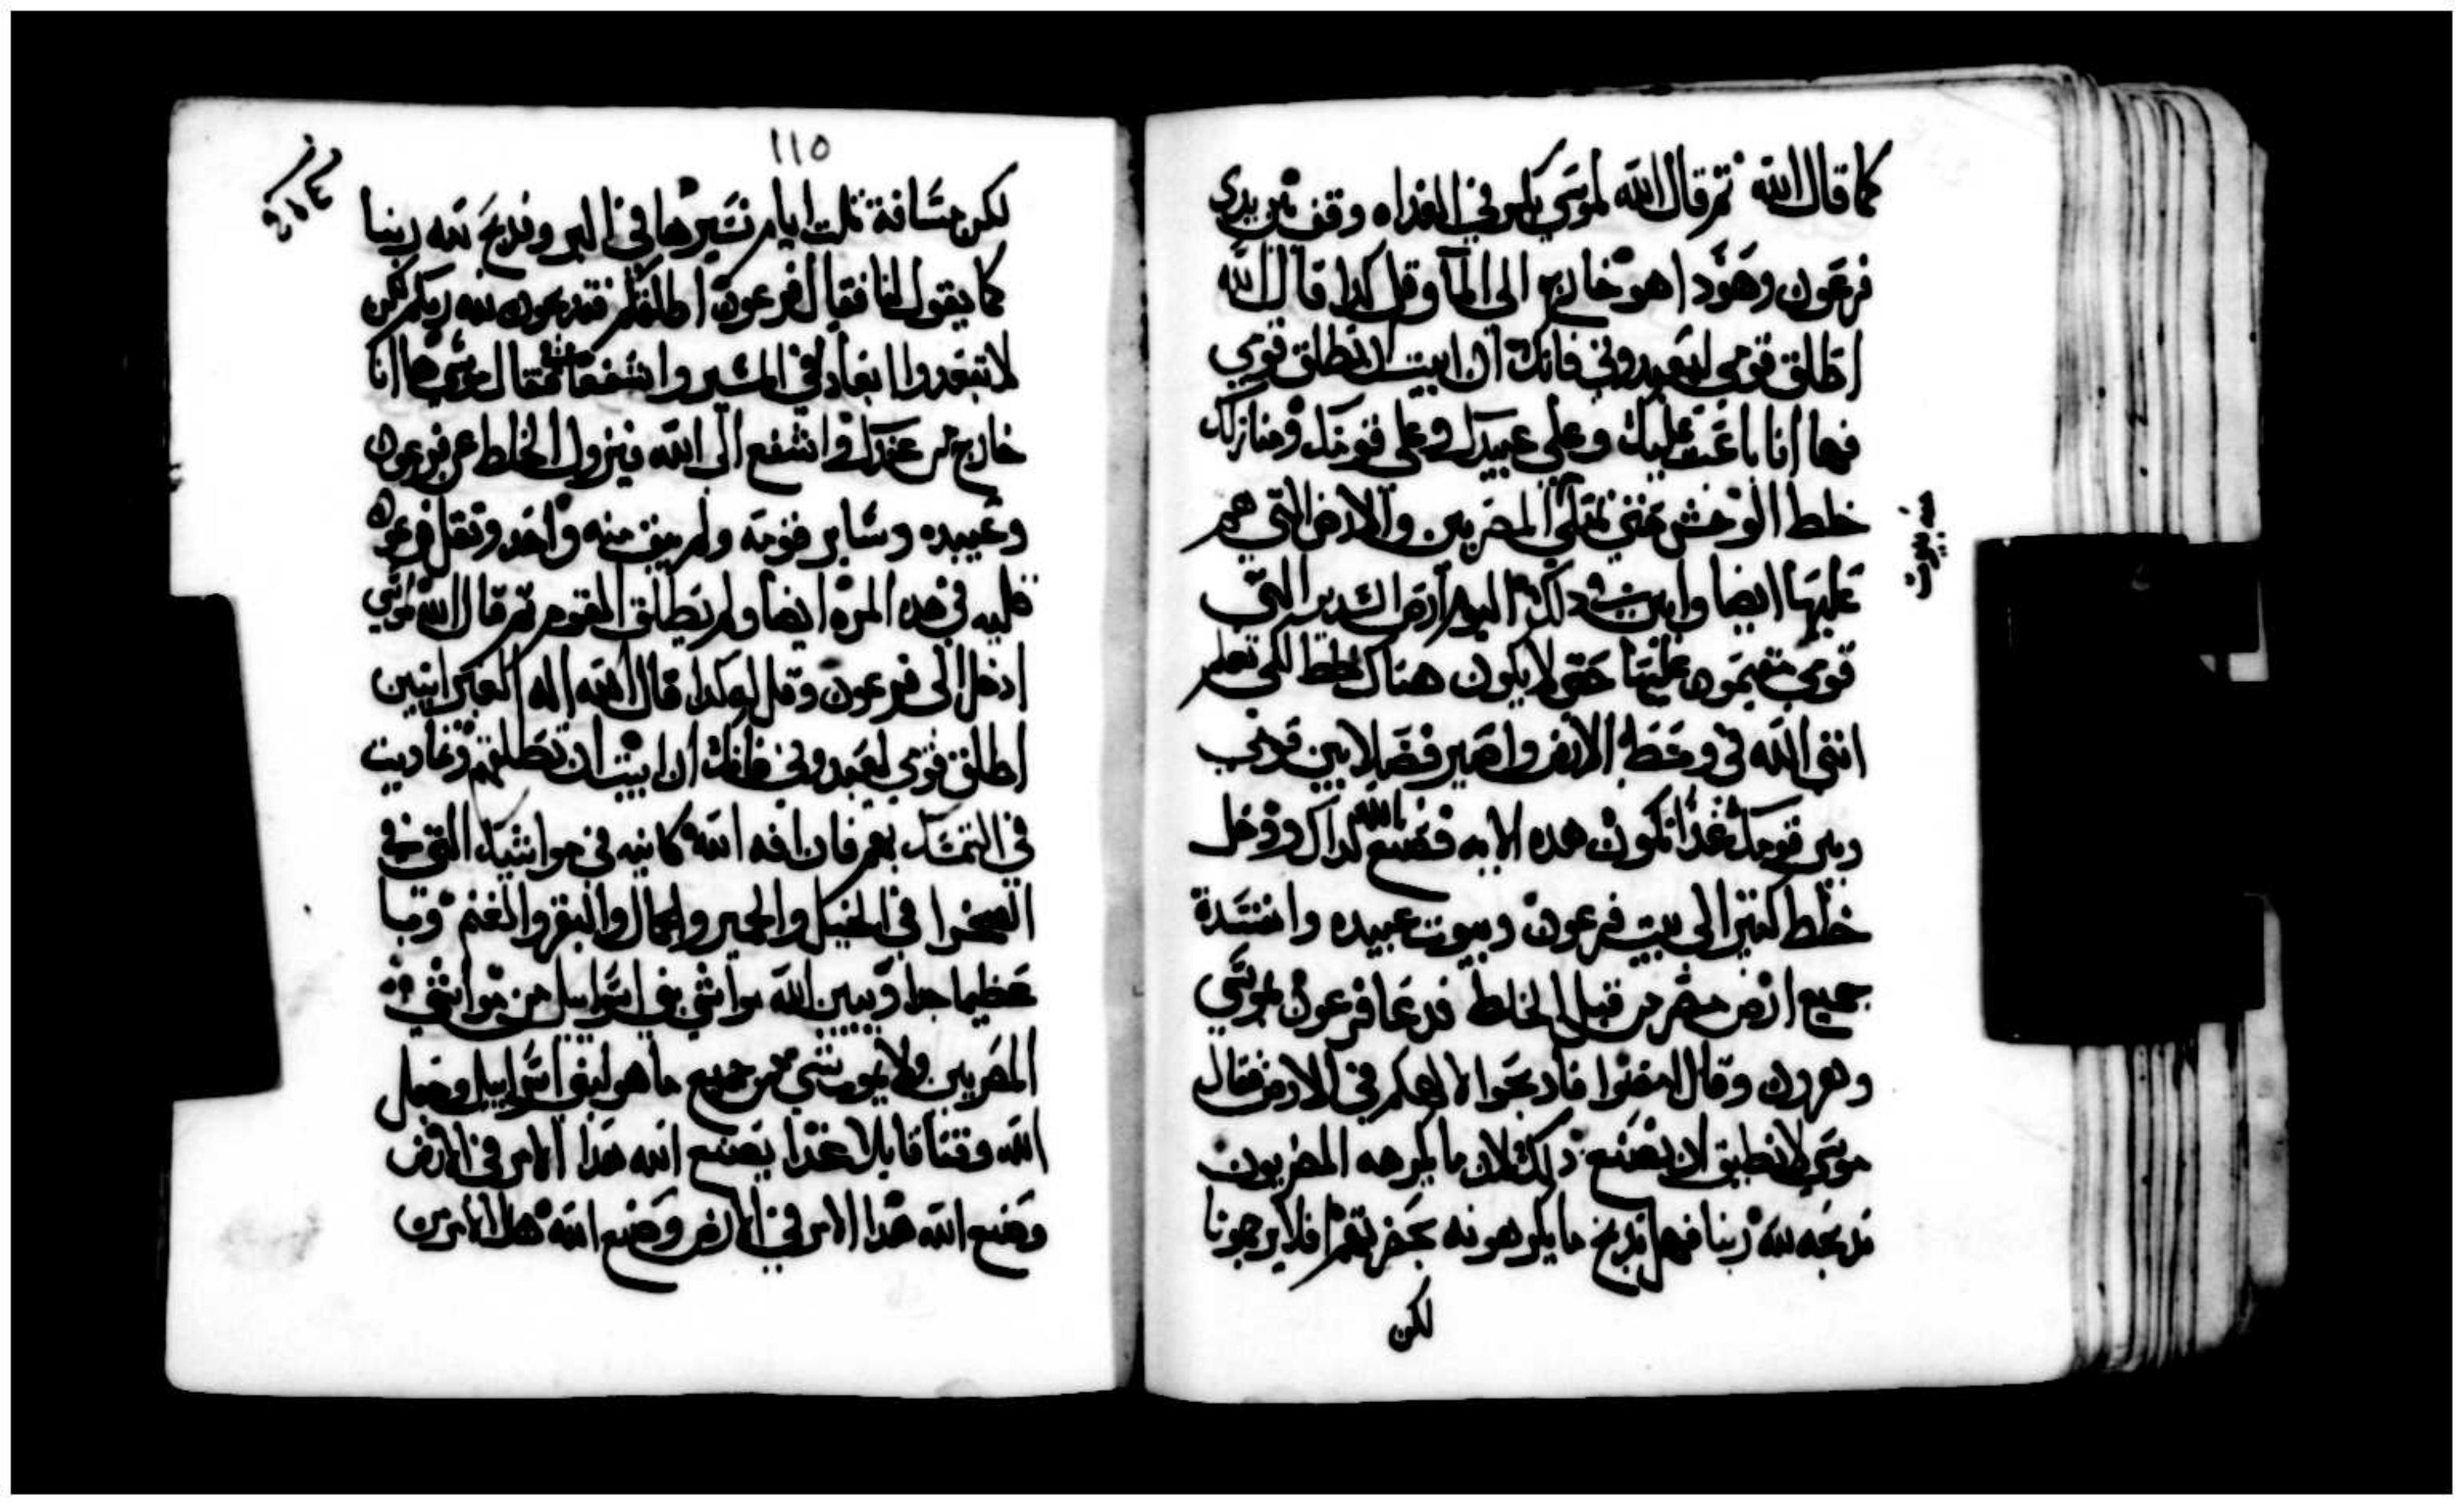 كما قال الله ثم قال الله لموسي باكر في الغداه وقف بين يدي
فرعون وهودا هو خارج الى المآ وقل له كدا قال الله
اطلق قومي ليعبدوني فانك ان ابيت ان تطلق قومي
فها انا باعث عليك وعلي عبيدك وعلي قومك ومنازلك
خلط الوحش حتي تمتلي المصريين والارض التي هم
عليها ايضا وابين في دلك اليوم ارض السدير التي
قومي مقيمون عليها حتي لا يكون هناك خلط لكي تعلم
انني الله في وسط الارض واصير فصلا بين قومي
وبين قومك غدا تكون هده الايه فصنع الله كداك ودخل
خلط كتير الى بيت فرعون وبيوت عبيده وانفسدة
جميع ارض مصر من قبل الخلط فدعا فرعون بموسي
وهرون وقال امضوا فادبحوا لالهكم في الارض فقال
موسي لا نطيق ان نصنع دلك لان ما يكرهه المصريون
ندبحه لله ربنا فهل ندبح ما يكرهونه بحضرتهم فلا يرجمونا
لكن
منه بيوت
١١٥
لكن مسافة تلت ايام نسيرها في البر وندبح لله ربنا
كما يقول لنا فقال فرعون اطلقكم فتدبحون لله ربكم لكن
لا تبعدوا ابعادا في المسير واشفعا فقال موسي ها انا
خارج من عندك واشفع الى الله فيزول الخلط عن فرعون
وعبيده وساير قومه ولم يبق منه واحد وتقل فرعون
قلبه في هده المره ايضا ولم يطلق القوم ثم قال الله لموسي
ادخل الى فرعون وقل له كدا قال الله اله العبرانيين
اطلق قومي ليعبدوني فانك ان ابيت ان تطلقهم وتماديت
في التمسك بهم فان افه الله كاينه في مواشيك التي في
الصحرا في الخيل والحمير والجمال والبقر والغنم وبا
عظيما جدا ويبين الله مواشي بني اسراييل من مواشي
المصريين ولا يموت شي من جميع ما هو لبني اسراييل وجعل
الله وقتا قايلا غدا يصنع الله هدا الامر في الارض
وصنع الله هدا الامر في الارض وصنع الله هدا الامر من